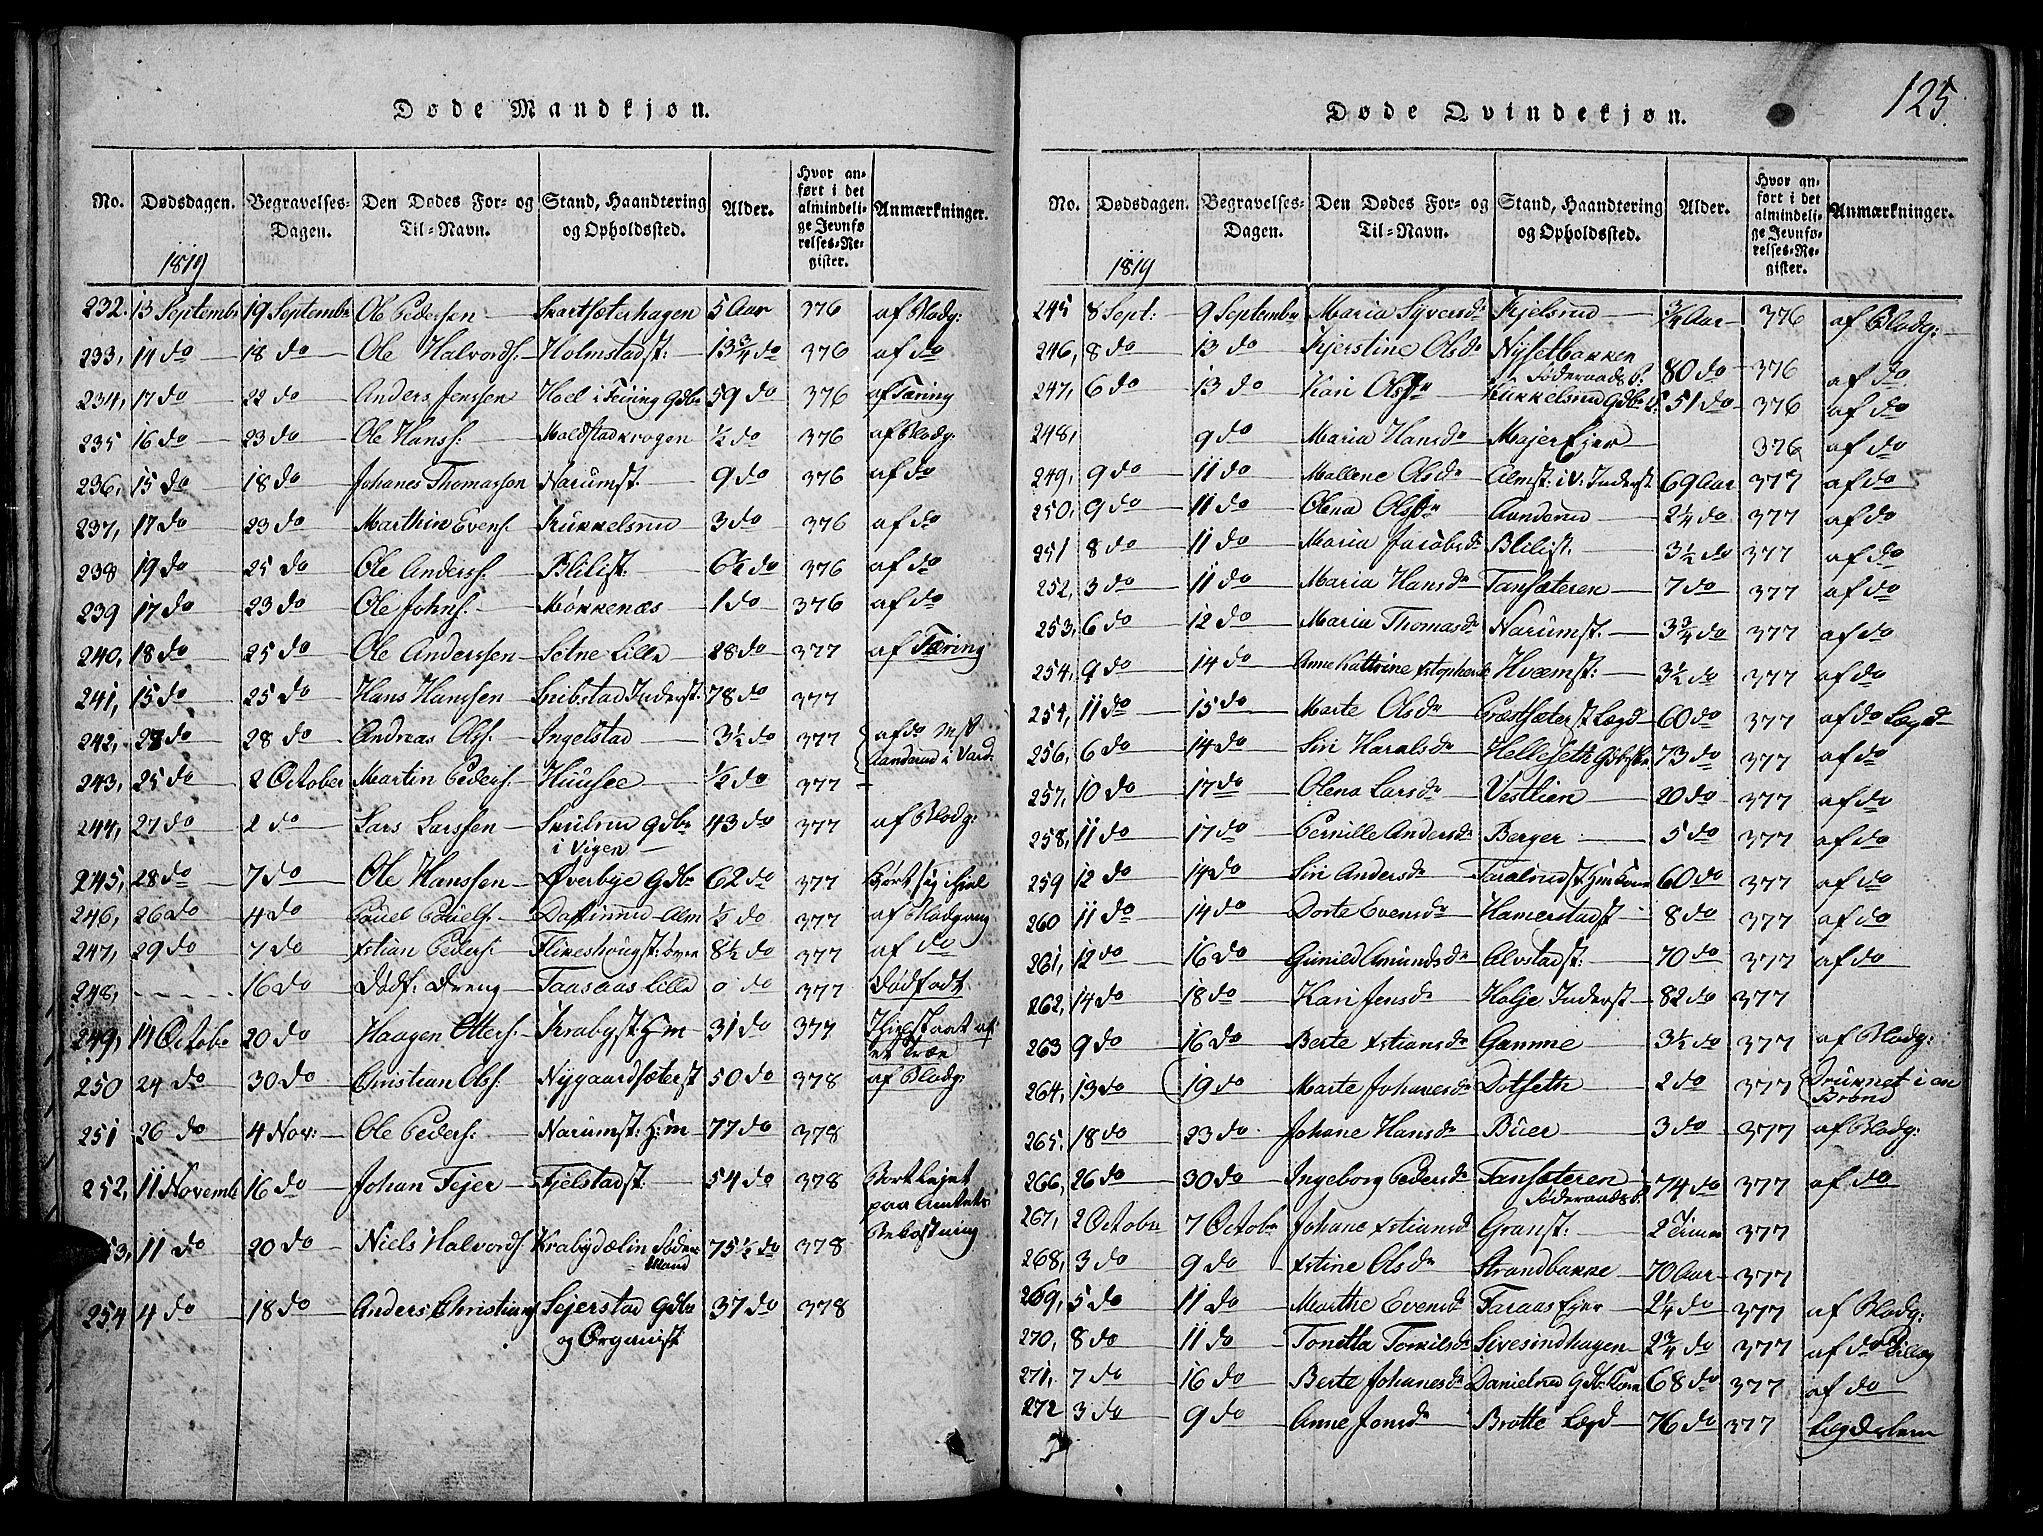 125.
Døde Mandkjøn.
No. Dødsdagen. Begravelses-Dagen. Den Dødes For- og Til-Navn. Stand, Haandtering og Opholdssted. Alder. Hvor anført i det almindelige Jevnførelses-Register. Anmærkninger.
1819
232. 13 Septembr 19 Septembr Ole Pedersen Skartsæterhagen 5 Aar 376 af Blodg:
233, 14 do 18 do Ole Halvords: Holmstadst: 13¾ do 376 af do
234, 17 do 22 do Anders Jenssen Hoel i Feiring Gdbr 59 do 376 af Tæring
235 16 do 23 do Ole Hanss: Moldstadkrogen ½ do 376 af Blodg:
236, 15 do 18 do Johanes Thomasson Narumst. 9 do 376 af do
237, 17 do 23 do Marthin Evens: Kukkelsrud 3 do 376 af do
238 19 do 25 do Ole Anderss: Blilist: 6½ do 376 af do
239 17 do 23 do Ole Johns: Møkkenæs 1 do 376 af do
240, 18 do 25 do Ole Anderssen Setne Lille 28 do 377 af Tæring
241, 15 do 25 do Hans Hanssen Snibstad Inderst: 78 do 377
242, 23 do 28 do Andreas Olss: Ingelstad 3½ do 377 af do
243, 25 do 2 October Martin Peders: Huusee ½ do 377 Sanderud i Vard:
244, 27 do 2 do Lars Larssen Skulrud Gdbr i Vigen 43 do 377 af Blodg:
245, 28 do 7 do Ole Hanssen Øverbye Gdbr 62 do 377
246, 26 do 4 do Pouel Pouels: Alm ½ do 377 af Blodgang
247, 29 do 7 do Xstian Peders: Flineshougst: 8½ do 377 af do
248, 16 do Dødf: Dreng Faasaas Lille 0 do 377 Dødfødt
249, 14 Octobr 20 do Haagen Otters: Krabyst Hm 31 do 377 Ihielslaaet af et Træe
250 24 do 30 do Christian Olss: Nygaardsæterst 50 do 378 af Blodg:
251 26 do 4 Nov: Ole Peders: Narumst: Hm 77 do 378
252, 11 Novembr 16 do Johan Fejer Fjelstadst: 54 do 378 Bortlejet paa Amtets Bekostning
253, 11 do 20 do Niels Halvords Krabydælin 75½ do 378
254 4 do 18 do Anders Christians Sejerstad Gdbr og Organist 37 do 378
Døde Qvindekjøn.
No. Dødsdagen. Begravelses-Dagen. Den Dødes For- og Til-Navn. Stand, Haandtering og Opholdssted. Alder. Hvor anført i det almindelige Jevnførelses-Register. Anmærkninger.
1819
245 8 Sept: 9 Septembr Maria Syversdr Kjelsrud ¾ Aar 376 af Blodg:
246, 8 do 13 do Kjerstine Olsdr Nysetbakken Søderaads P: 80 do 376 af do
247, 6 do 13 do Kari Olsdr Kukkelsrud Gdbr 51 do 376 af do
248, 9 do Maria Hansdr Majer Ejer 376 af do
249, 9 do 11 do Mallene Olsdr Almst: i V: Inderst 69 Aar 377 af do
250, 9 do 11 do Olena Olsdr Aanderud 2¼ do 377 af do
251 8 do 11 do Maria Jacobsdr Blilist. 3½ do 377 af do
252, 3 do 11 do Maria Hansdr Tansæteren 7 do 377 af do
253, 6 do 12 do Maria Thomasdr Narumst. 3¾ do 377 af do
254, 9 do 14 do Anne Kattrine Xstophersdr Hvæmst: 3½ do 377 af do
254, 11 do 15 do Marte Olsdr Præstsæterst Lægd 60 do 377 af do Lægd
256, 6 do 14 do Siri Haralsdr Helleseth 73 do 377 af do
257, 10 do 17 do Olena Larsdr Vestlien 20 do 377 af do
258, 11 do 17 do Pernille Andersdr Berger 5 do 377 af do
259 12 do 14 do Siri Andersdr Taralrudst Hm 60 do 377 af do
260 11 do 14 do Dorte Evensdr Hamerstadst 8 do 377 af do
261, 12 do 16 do Gunild Amundsdr Alvstadst: 70 do 377 af do
262, 14 do 18 do Kari Jensdr Holje Inderst 82 do 377
263 9 do 16 do Berte Xstiansdr Gamme 3½ do 377 af Blodg:
264, 13 do 19 do Marte Johanesdr Dotseth 2 do 377 Druknet i en Brønd
265, 18 do 23 do Johane Hansdr Buer 3 do 377 af Blodg:
266, 26 do 30 do Ingeborg Pedersdr Tansæteren Søderaads P 74 do 377 af do
267, 2 Octobr 7 Octobr Johane Xstiansdr Granst: 2 377
268, 3 do 9 do Xstine Olsdr Strandbakke 70 Aar 377
269, 5 do 11 do Marthe Evensdr Faraas Ejer 2¼ do 377 af Blodg:
270, 8 do 11 do Tonetta Tomilsdr Sivesindhagen 2¾ do 377 af do Billæg
271, 7 do 16 do Berte Johanesdr Danielsrud Gdbr Kone 68 do 377 af do
272 3 do 9 do Anne Jonsdr Brøtte Lægd 76 do 377 Lægdslem